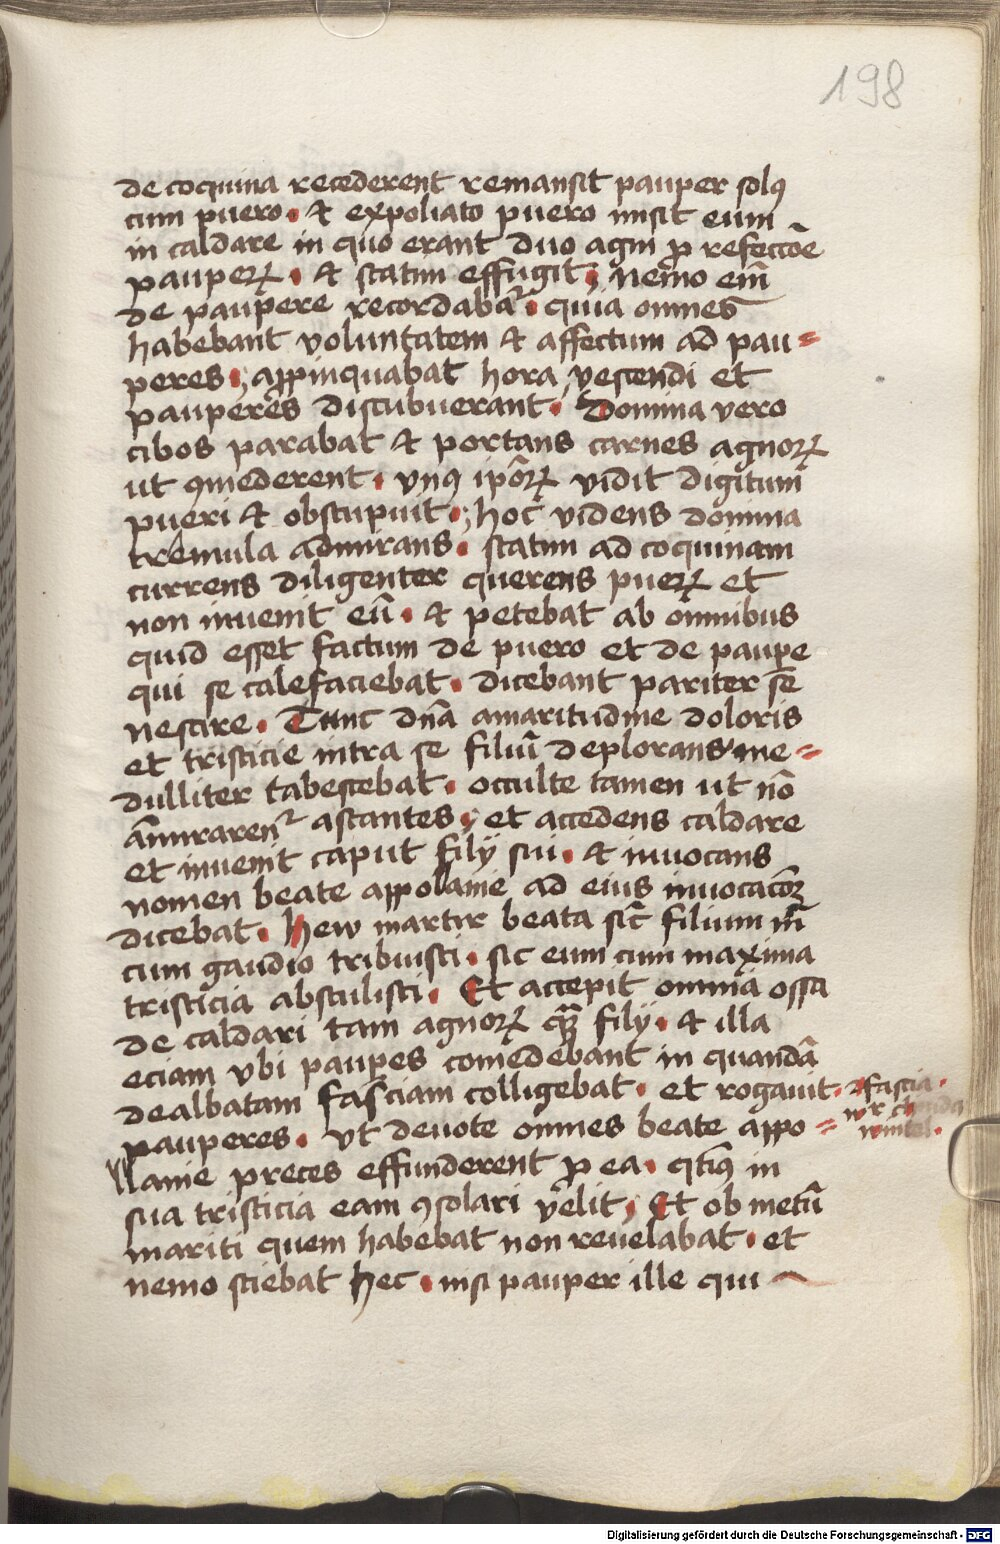 198
de coquina recederent remansit pauper solꝰ
cum puero · & expoliato puero misit eum
in caldare in quo erant duo agni ꝓ refecc̄oē
pauperꝝ · & statim effugit ; nemo em̄
de paupere recordabaᷣ · quia omnes
habebant voluntatem & affectum ad pau=
peres ; appinquabat hora vescendi et
pauperes discubuerant · Domina vero
cibos parabat & portans carnes agnorꝝ
ut ꝯmederent · vnꝰ ip̄orꝝ vidit digitum
pueri & obstupuit ; hoc videns domina
tremula admirans · statim ad coquinam
currens diligenter querens puerꝝ et
non inuenit eū · & petebat ab omnibus
quid esset factum de puero et de paupe
qui se calefaciebat · dicebant pariter se
nescire · Tunc dn̄a amaritudine doloris
et tristicie intra se filiū deplorans me=
dulliter tabescebat · occulte tamen ut nō
āmirarenᷣ astantes ; et accedens caldare
et inuenit caput filÿ sui · & inuocans
nomen beate appolanie ad eius inuocacōꝫ
dicebat · Hew martir beata sic̄ filium m̄
cum gaudio tribuisti · sic eum cum maxima
tristicia abstulisti · Et accepit omnia ossa
de caldari tam agnorꝝ qꝫ̄ filÿ · & illa
eciam vbi paupes comedebant in quandā
dealbatam fasciam colligebat · et rogauit ·
fascia ·
pauperes · vt deuote omnes beate appo=
lanie preces effunderent ꝓ ea · qt̄iꝰ in
sua tristicia eam ꝯsolari velit ; Et ob metū
mariti quem habebat non reuelabat · et
nemo sciebat hec · nisi pauper ille qui
Digitalisierung gefördert durch die Deutsche Forschungsgemeinschaft · DFG